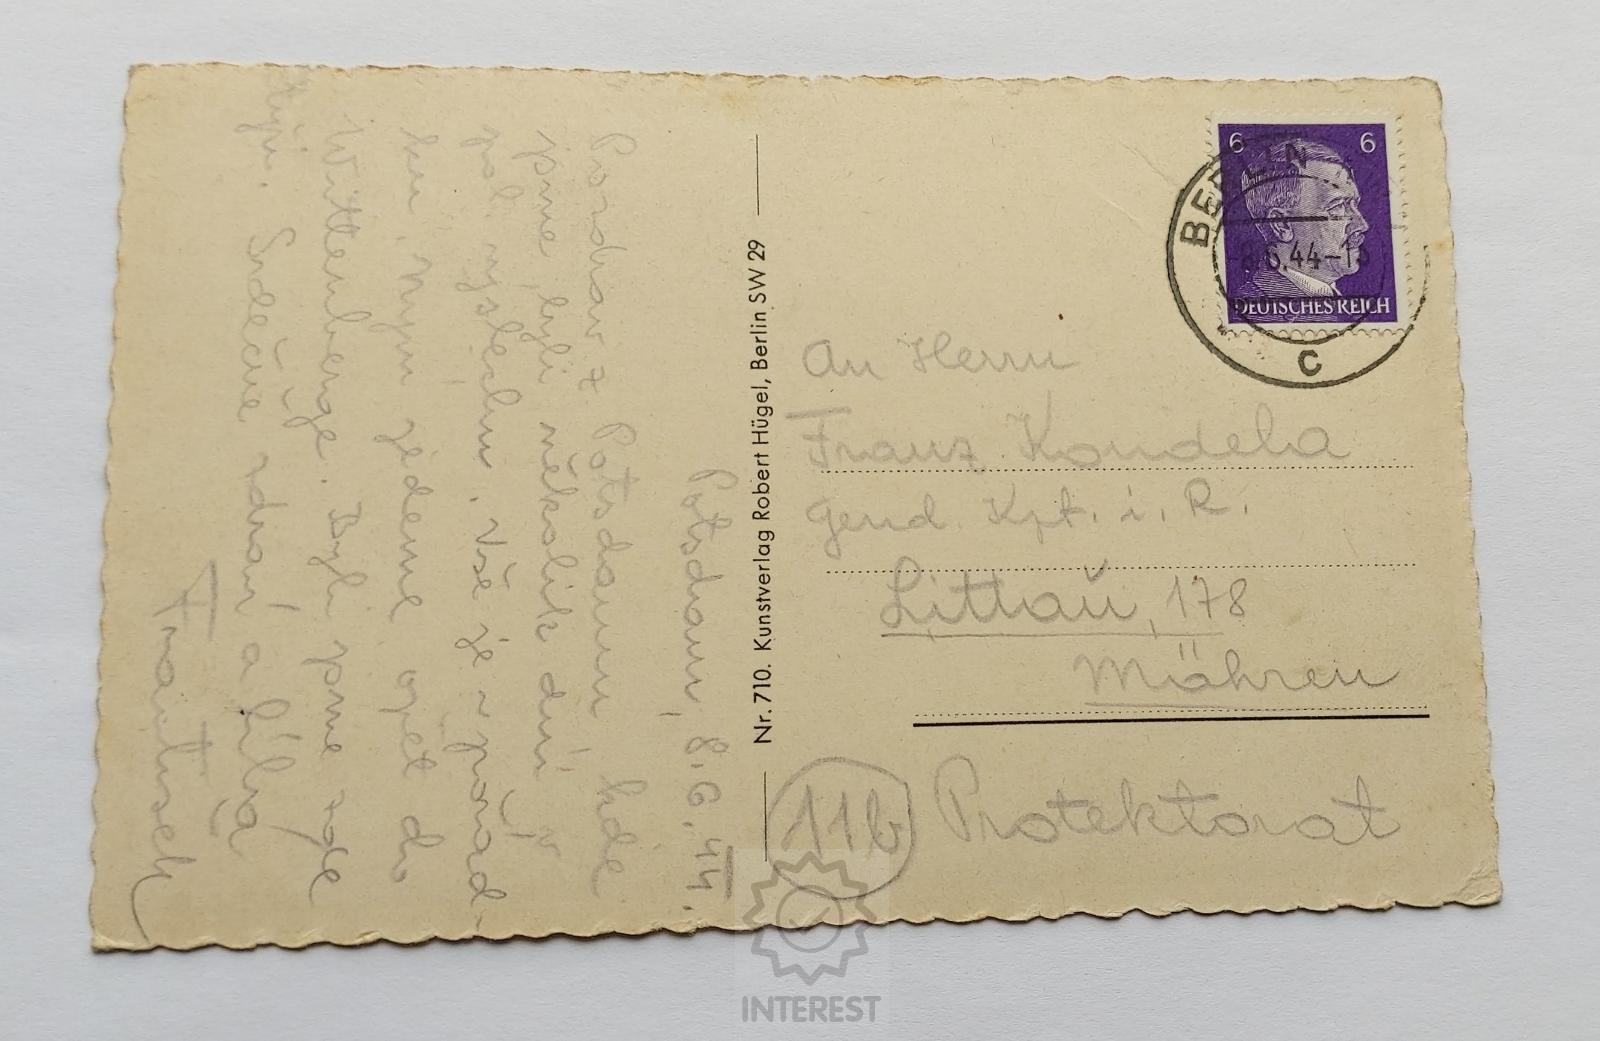 Potsdam, 8.6.44.
Pozdrav z Potsdamu kde
jsme byli několik dní v
pol. výslechu. Vše je v pořád-
ku. Nyní jedeme opět do
Wittenberge. Byli jsme zde
Srdečně zdraví a líbá
František
Nr. 710. Kunstverlag Robert Hügel, Berlin SW 29
6 6
DEUTSCHES REICH
BERLIN
-8.6.44-13
C
An Herrn
Franz Koudela
Gend. Kpt. i. R.
Littau, 178
Mähren
11b Protektorat
INTEREST